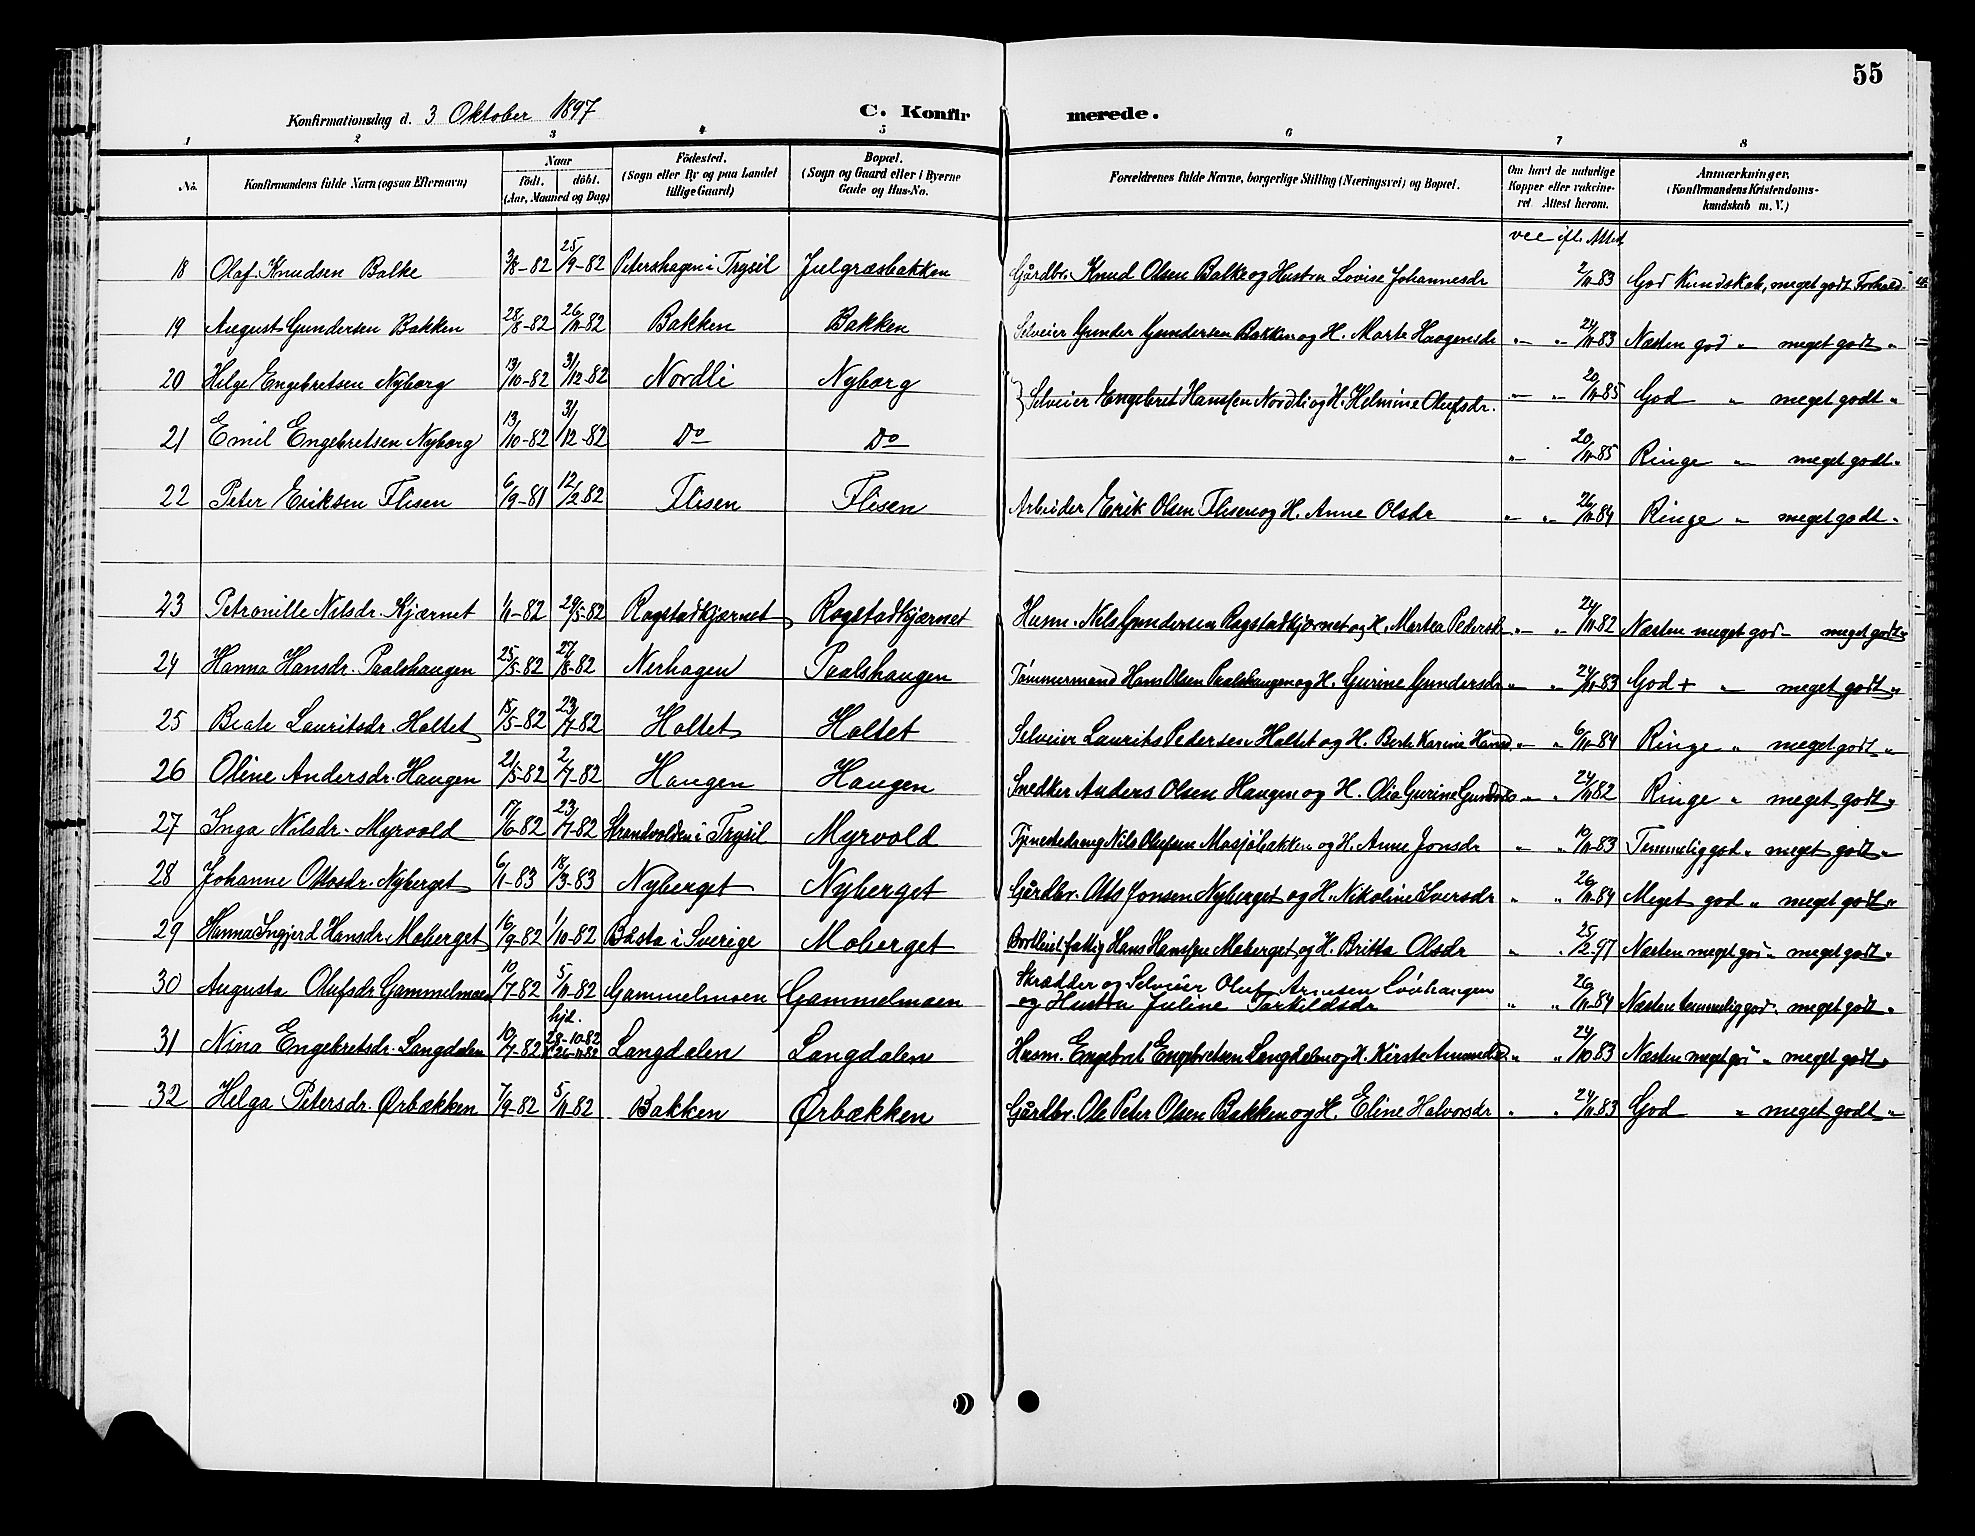 55
Konfirmationsdag d. 3 Oktober 1897 C. Konfir merede.
1 2 3 4 5 6 7 8
No. Konfirmandens fulde Navn (ogsaa Efternavn)
Naar
födt. döbt.
(Aar, Maaned og Dag)
Födested.
(Sogn eller By og paa Landet
tillige Gaard)
Bopæl.
(Sogn og Gaard eller i Byerne
Gade og Hus-No.
Forældrenes fulde Navne, borgerlige Stilling (Næringsvei) og Bopæl.
Om havt de naturlige
Kopper eller vakcine-
ret. Attest herom.
Anmærkninger.
(Konfirmandens Kristendoms-
kundskab m. V.)
vac ifl. Attest
18 Olaf Knudsen Balke 3/8-82 25/9-82 Petershagen i Trysil Julgræsbakken Gårdbr. Knud Olsen Balke og Hustru Lovise Johannesdr 2/11 83 God Kundskab, meget godt Forhold
19 August Gundersen Bakken 28/8-82 26/11-82 Bakken Bakken Selveier Gunder Gundersen Bakken og H. Marte Haagensdr " " 24/11 83 Næsten god " meget godt "
20 Helge Engebretsen Nyborg 13/10-82 31/12-82 Nordli Nyborg } Selveier Engebret Hanssen Nordli og H. Helmine Olufsdr. " " 20/11 85 God " meget godt "
21 Emil Engebretsen Nyborg 13/10-82 31/12-82 Do Do " 20/11 85 Ringe " meget godt "
22 Peter Eriksen Flisen 6/9-81 12/2-82 Flisen Flisen Arbeider Erik Olsen Flisen og H. Anne Olsdr " " 26/11 84 Ringe " meget godt "
23 Petronille Nilsdr. Kjærnet 1/1-82 29/5-82 Rogstadkjærnet Rogstadkjærnet Husm. Nils Gundersen Rogstadkjærnet og H. Martea Pedersdr " " 24/11 82 Næsten meget god " meget godt "
24 Hanna Hansdr. Paalshaugen 25/5-82 27/8-82 Nerhagen Paalshaugen Tømmermand Hans Olsen Paalshaugen og H. Gurine Gundersdr " " 24/11 83 God + " meget godt "
25 Beate Lauritsdr. Holtet 15/5-82 23/7-82 Holtet Holtet Selveier Laurits Pedersen Holtet og H. Berte Karine Hansd " " 6/11 84 Ringe " meget godt "
26 Oline Andersdr. Haugen 21/5-82 2/7-82 Haugen Haugen Snedker Anders Olsen Haugen og H. Olia Gurine " " 24/11 82 Ringe " meget godt "
27 Inga Nilsdr. Myrvold 17/6-82 23/7-82 Strandvolden i Trysil Myrvold Tjenestedreng Nils Olufsen Mosjöbakken og H. Anne Jonsdr " " 19/11 83 Temmelig god " meget godt "
28 Johanne Ottosdr. Nyberget 6/1-83 18/3-83 Nyberget Nyberget Gårdbr. Otto Jonsen Nyberget og H. Nikoline Iversdr " " 26/11 84 Meget god " meget godt "
29 Hanna Ingjerd Hansdr. Moberget 16/9-82 1/10-82 Båsta i Sverige Moberget fattig Hans Hanssen Moberget og H. Britta Olsdr " " 25/2-97 Næsten meget god " meget godt "
30 Augusta Olufsdr Gammelmoen 10/7-82 5/11-82 Gammelmoen Gammelmoen Skrædder og Selveier Oluf Arnesen Lövhaugen
og Hustru Juline Torkildsdr " " 26/11 84 Næsten temmelig god " meget godt "
31 Nina Engebretsdr. Langdalen 10/7-82 hjd. 28-10-82 26-11-82 Langdalen Langdalen Husm. Engebret Engebretsen Langdalen og H. Kirste Amundsd " " 24/10 83 Næsten meget god " meget godt "
32 Helga Petersdr. Ørbækken 7/9-82 5/11-82 Bakken Ørbækken Gårdbr. Ole Peter Olsen Bakken og H. Eline Halvorsdr " " 24/11 83 God " meget godt "